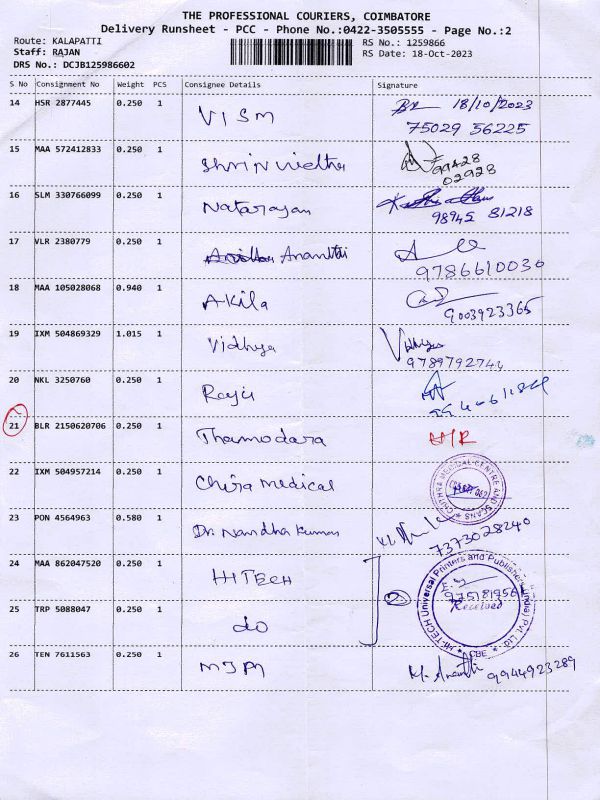 THE PROFESSIONAL COURIERS, COIMBATORE
Delivery Runsheet - PCC - Phone No.:0422-3505555 - Page No.:2
Route: KALAPATTI
RS No.: 1259866
Staff: RAJAN
RS Date: 18-Oct-2023
DRS No.: DCJB125986602
S No Consignment No Weight PCS Consignee Details Signature
14 HSR 2877445 0.250 1 VISM 18/10/2023
75029 56225
15 MAA 572412833 0.250 1 99428
02928
16 SLM 330766099 0.250 1 Natarajan
98945 81218
17 VLR 2380779 0.250 1
9786610030
18 MAA 105028068 0.940 1 Akila
9003923365
19 IXM 504869329 1.015 1 Vidhya
9789792744
20 NKL 3250760 0.250 1
21 BLR 2150620706 0.250 1 Thamodara
22 IXM 504957214 0.250 1 Chira medical
CHITHRA MEDICAL CENTRE AND SCANS
23 PON 4564963 0.580 1 Dr. Nandha Kumar
7373028240
24 MAA 862047520 0.250 1 HITECH
HI-TECH Universal Printers and Publishers (India) Pvt. Ltd.
Received
CBE
25 TRP 5088047 0.250 1 do
26 TEN 7611563 0.250 1 MJM M. Ananthi 9944923289